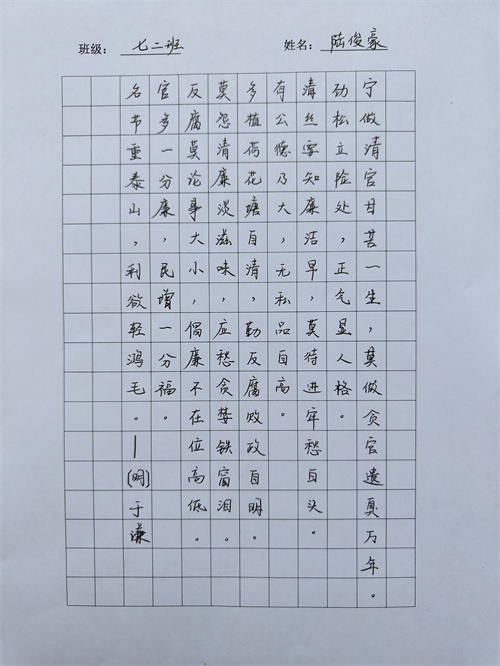 班级： 七二班 姓名： 陆俊豪
宁做清官甘苦一生，莫做贪官遗臭万年。
劲松立险处，正气显人格。
清丝寥知廉洁早，莫待进牢愁白头。
有公德乃大，无私品自高。
多植荷花塘自清，勤反腐败政自明。
莫怨清廉淡滋味，应愁贪婪铁窗泪。
反腐莫论事大小，倡廉不在位高低。
官多一分廉，民增一分福。
名节重泰山，利欲轻鸿毛。—(明)于谦